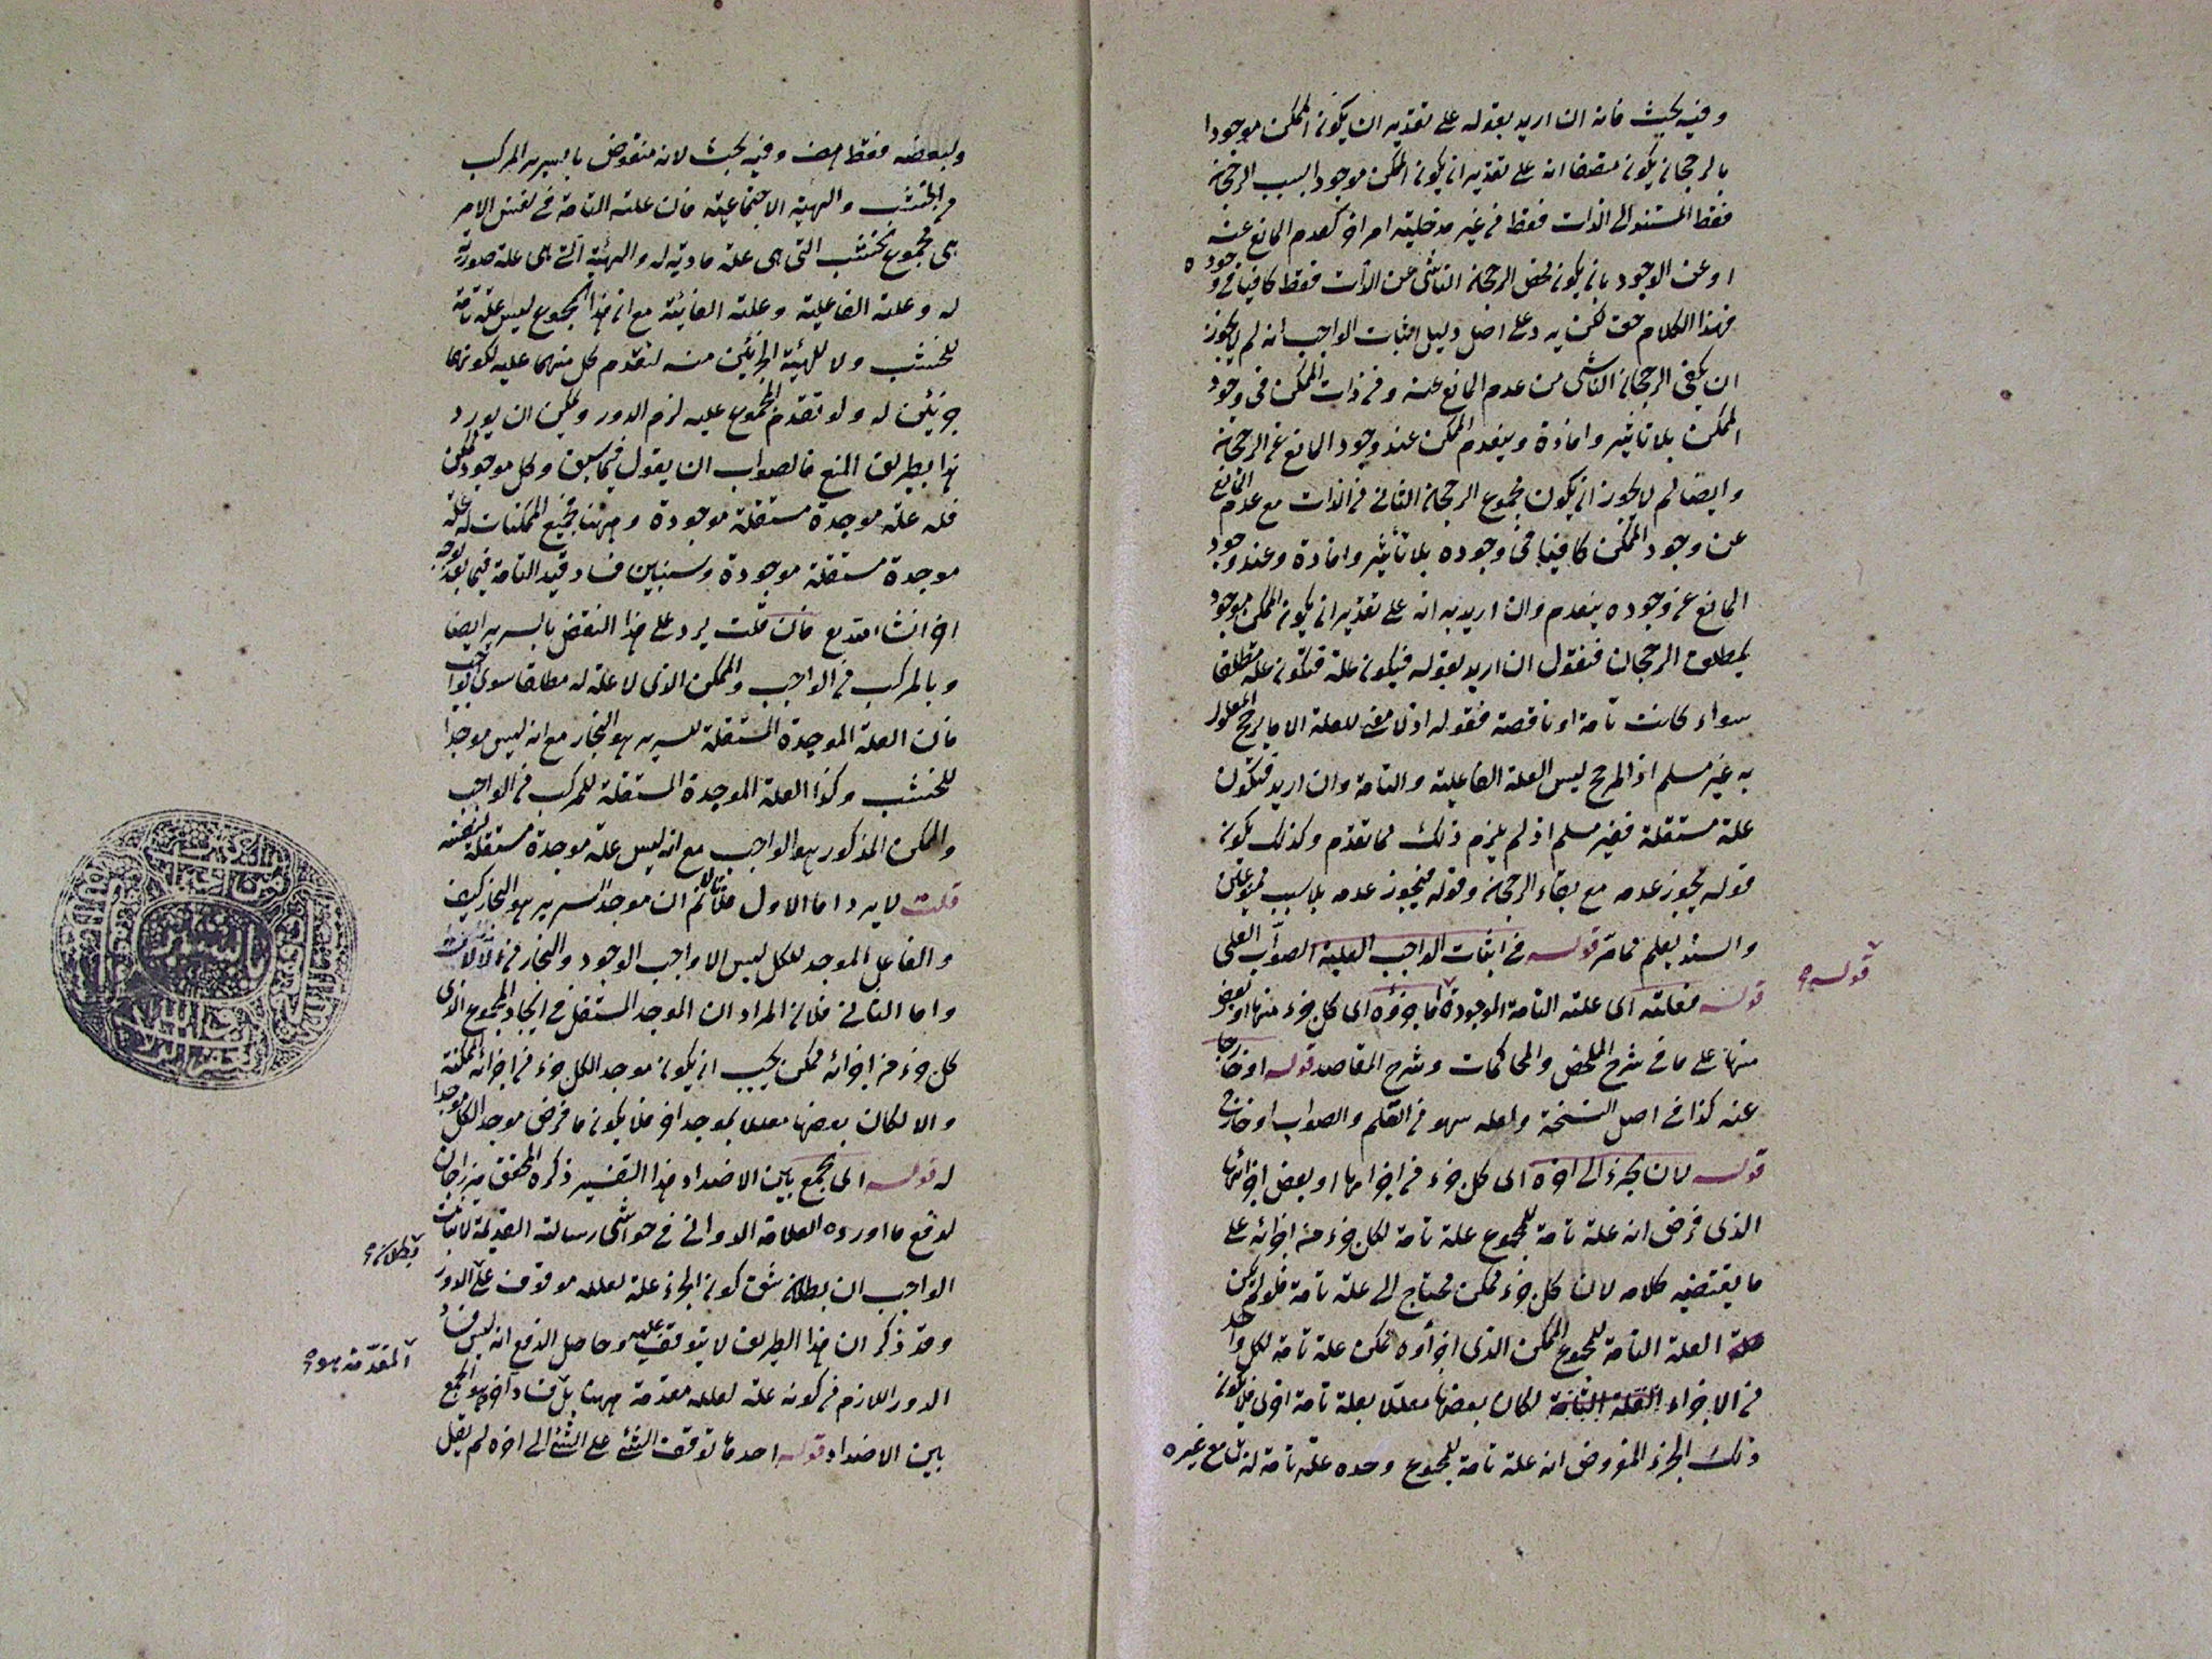 وفيه بحث فانه ان اريد بقوله على تقدير ان يكون الممكن موجودا
بالرجحان يكون متصفا انه على تقدير ان يكون الممكن موجودا بسبب الرجحان
فقط المستند الى الذات فقط من غير مدخلية امر اخر كعدم المانع عنه
او عن الوجود بان يكون محض الرجحان الناشى عن الذات فقط كافيا فى وجوده
فهذا الكلام حق لكن يرد على اصل دليل اثبات الواجب انه لم لا يجوز
ان يكفى الرجحان الناشى من عدم المانع عنه ومن ذات الممكن فى وجود
الممكن بلا تاثير وافادة وينعدم الممكن عند وجود المانع عن الرجحان
وايضا لم لا يجوز ان يكون مجموع الرجحان الناشى من الذات مع عدم المانع
عن وجود الممكن كافيا فى وجوده بلا تاثير وافادة وعند وجود
المانع عن وجوده ينعدم وان اريد به انه على تقدير ان يكون الممكن موجود
بمطلق الرجحان فنقول ان اريد بقوله فيكون علة فتكون علة مطلقا
سواء كانت تامة او ناقصة فقوله اذ لا معنى للعلة الا ما يرجح المعلول
به غير مسلم اذ المرجح ليس العلة الفاعلية والتامة وان اريد فتكون
علة مستقلة فغير مسلم اذ لم يلزم ذلك مما تقدم وكذلك يكون
قوله يجوز عدمه مع بقاء الرجحان وقوله فيجوز عدمه بلا سبب
والسند يعلم مما مر قوله فى اثبات الواجب العلية الصواب العلى
قوله فعلته اى علته التامة الموجودة اما جزؤه اى كل جزء منها او بعض
منها على ما فى شرح الملخص والمحاكمات وشرح المقاصد قوله او خارجا
عنه كذا فى اصل النسخة ولعله سهو من القلم والصواب او خارج
قوله لان جزء الى اخره اى كل جزء من اجزائها او بعض اجزائها
الذى فرض انه علة تامة للمجموع علة تامة لكل جزء من اجزائه على
ما يقتضيه كلامه لان كل جزء ممكن محتاج الى علة تامة فلو لم يكن
العلة التامة للمجموع الممكن الذى اجزاؤه ممكن علة تامة لكل واحد
من الاجزاء لكان بعضها معللا بعلة تامة اخرى فلا يكون
ذلك الجزء المفروض انه علة تامة للمجموع وحده علة تامة له بل مع غيره
قوله
ولبعضه فقط وفيه بحث لانه منقوض بالسرير المركب
من الخشب والهيئة الاجتماعية فان علته التامة فى نفس الامر
هى مجموع الخشب التى هى علة مادية له والهيئة التى هى علة صورية
له وعلته الفاعلية وعلته الغائية مع ان هذا المجموع ليس علة تامة
للخشب ولا للهيئة الجزئين منه لتقدم كل منهما عليه لكونهما
جزئين له ولو تقدم المجموع عليه لزم الدور ويمكن ان يورد
هذا بطريق المنع فالصواب ان يقول فيما سبق وكل موجود ممكن
فله علة موجدة مستقلة موجودة وههنا جميع الممكنات له علة
موجدة مستقلة موجودة وسنبين فساد قيد التامة فيما بعد بوجه
اخر ان شاء الله تع فان قلت يرد على هذا النقض بالسرير ايضا
وبالمركب من الواجب والممكن الذى لا علة له مطلقا سوى الواجب
فان العلة الموجدة المستقلة للسرير هو النجار مع انه ليس موجدا
للخشب وكذا العلة الموجدة المستقلة للمركب من الواجب
والممكن المذكور هو الواجب مع انه ليس علة موجدة مستقلة لنفسه
قلت لا يرد اما الاول فلانا لا نم ان موجد السرير هو النجار كيف
والفاعل الموجد للكل ليس الا واجب الوجود والنجار من الالات
واما الثانى فلان المراد ان الموجد المستقل فى ايجاد المجموع الذى
كل جزء من اجزائه ممكن يجب ان يكون موجد الكل جزء من اجزائه الممكنة
والا لكان بعضها معللا بموجد اخر فلا يكون ما فرض موجد الكل موجدا
له قوله اى يجمع بين الاضداد هذا التفسير ذكره المحقق ميرزا جان
لدفع ما اورده العلامة الدوانى فى حواشى رسالته القديمة لاثبات
الواجب ان بطلان شق كون الجزء علة لعلله موقوف على الدور
وقد ذكر ان هذا الطريق لا يتوقف عليه وحاصل الدفع انه ليس فساد
الدور اللازم من كونه علة لعلله مقدمة ههنا بل فساد اخر هو الجمع
بين الاضداد قوله احدهما توقف الشئ على الشئ الى اخره لم يقل
بطلان
المقدمة هو